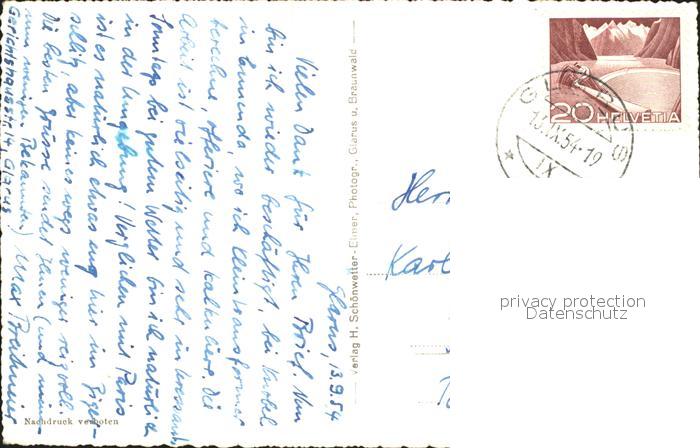 Glarus, 13.9.54
Vielen Dank für Ihren Brief. Nun
bin ich wieder beschäftigt, bei Knobel
in Ennenda, wo ich Kleintransformer
berechne, offeriere und kalkuliere. Die
Arbeit ist vielseitig und sehr interessant.
Sonntags bei gutem Wetter bin ich natürlich
in der Umgebung! Verglichen mit Paris
ist es natürlich etwas eng hier im Ziger-
schlitz, aber keineswegs weniger reizvoll.
Die besten Grüsse sendet Ihnen (und mein-
nen wenigen Bekannten) Max
Gerichtshausstr. 14, Glarus
Nachdruck verboten
Verlag H. Schönwetter-Elmer, Photogr., Glarus u. Braunwald
20 HELVETIA
GLARUS
13.IX.54-19
IX
Herr
Karl
privacy protection
Datenschutz